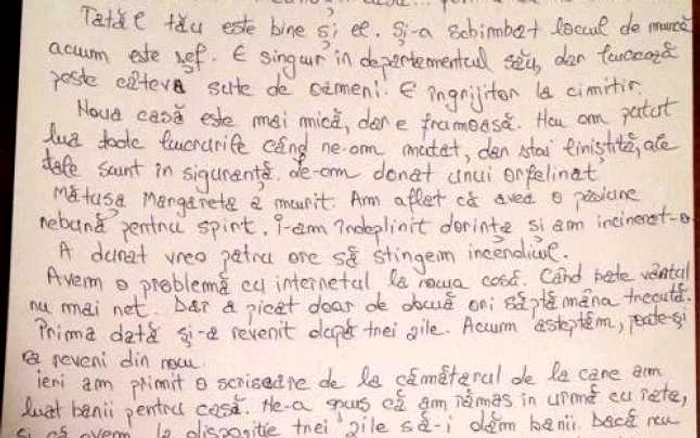 Tatăl tău este bine și el. Și-a schimbat locul de muncă
acum este șef. E singur în departamentul său, dar lucrează
peste câteva sute de oameni. E îngrijitor la cimitir.
Noua casă este mai mică, dar e frumoasă. N-am putut
lua toate lucrurile când ne-am mutat, dar stai liniștită, ale
tale sunt în siguranță. Le-am donat unui orfelinat.
Mătușa Margareta a murit. Am aflat că avea o pasiune
nebună pentru spirt. I-am îndeplinit dorința și am incinerat-o
A durat vreo patru ore să stingem incendiul.
Avem o problemă cu internetul la noua casă. Când bate vântul
nu mai net. Dar a picat doar de două ori săptămâna trecută.
Prima dată și-a revenit după trei zile. Acum așteptăm, poate-și
va reveni din nou.
ieri am primit o scrisoare de la cămătarul de la care am
luat banii pentru casă. Ne-a spus că am rămas în urmă cu rata,
și că avem la dispoziție trei zile să-i dăm banii. Dacă nu